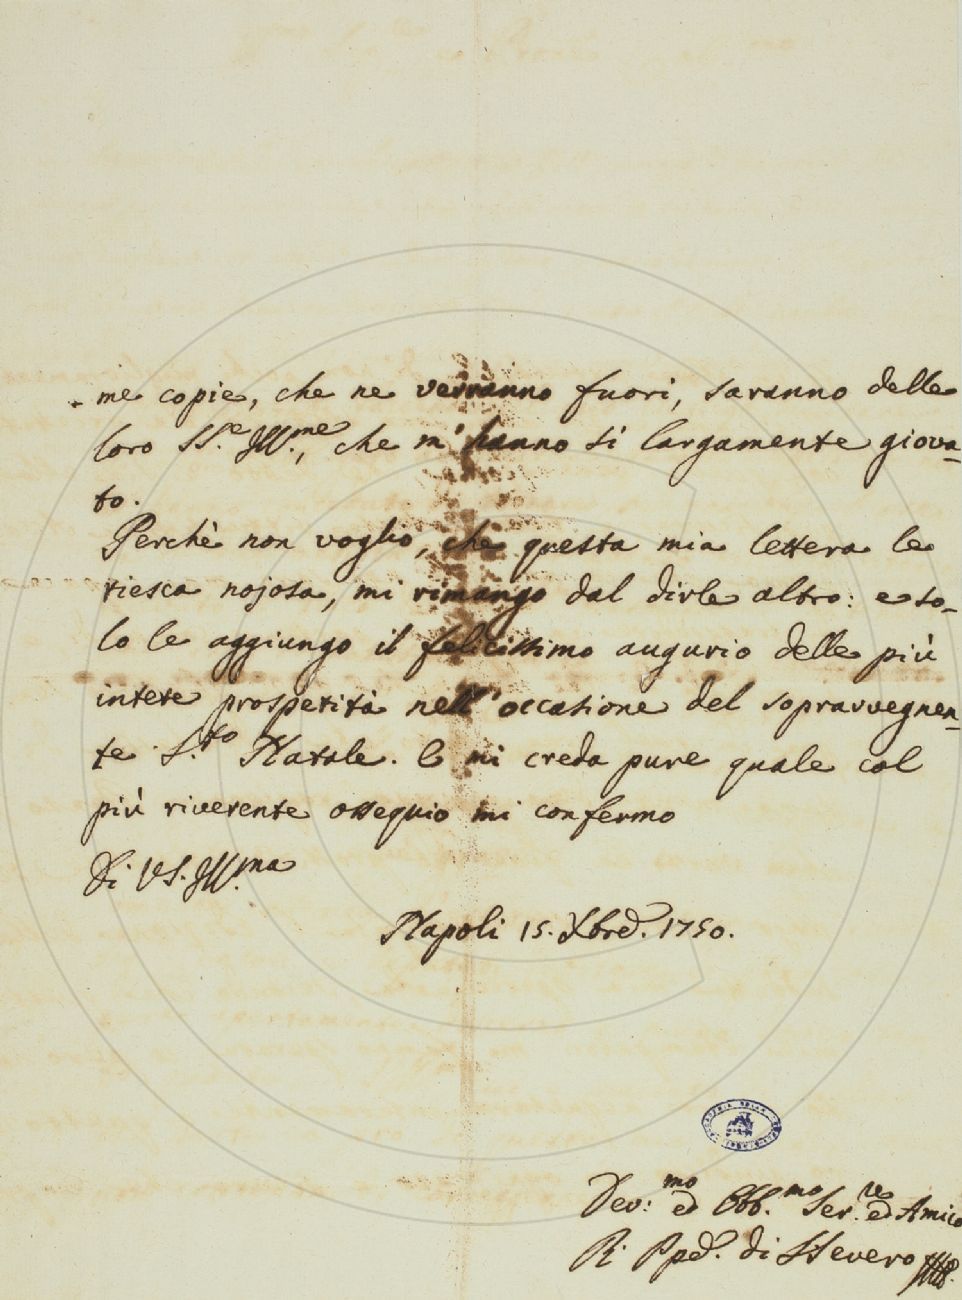 me copie, che ne verranno fuori, saranno delle
loro SS.e Ill.me, che m'hanno sì largamente giova-
to.
Perchè non voglio, che questa mia lettera le
riesca nojosa, mi rimango dal dirle altro: e so-
lo le aggiungo il felicissimo augurio delle più
intere prosperità nell'occasione del sopravvegnen-
te S.to Natale. E mi creda pure quale col
più riverente ossequio mi confermo
Di VS. Ill.ma
Napoli 15. Xbre. 1750.
ACCADEMIA DELLA
Dev:mo ed Obb.mo Ser.re ed Amico
Il Ppe. di SSevero